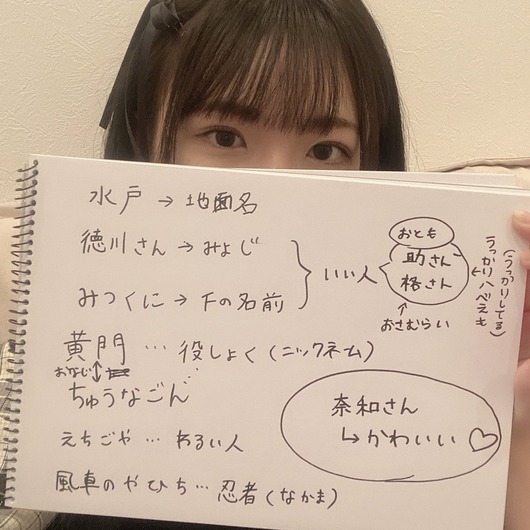 水戸→地面名
徳川さん→みょじ
みつくに→下の名前
いい人
おとも
助さん
格さん
おさむらい
うっかりハベえも
(うっかりしてる)
黄門…役しょく(ニックネーム)
おなじ
ちゅうなごん
えちごや…わるい人
風車のやひち…忍者(なかま)
奈和さん
↳かわいい♡